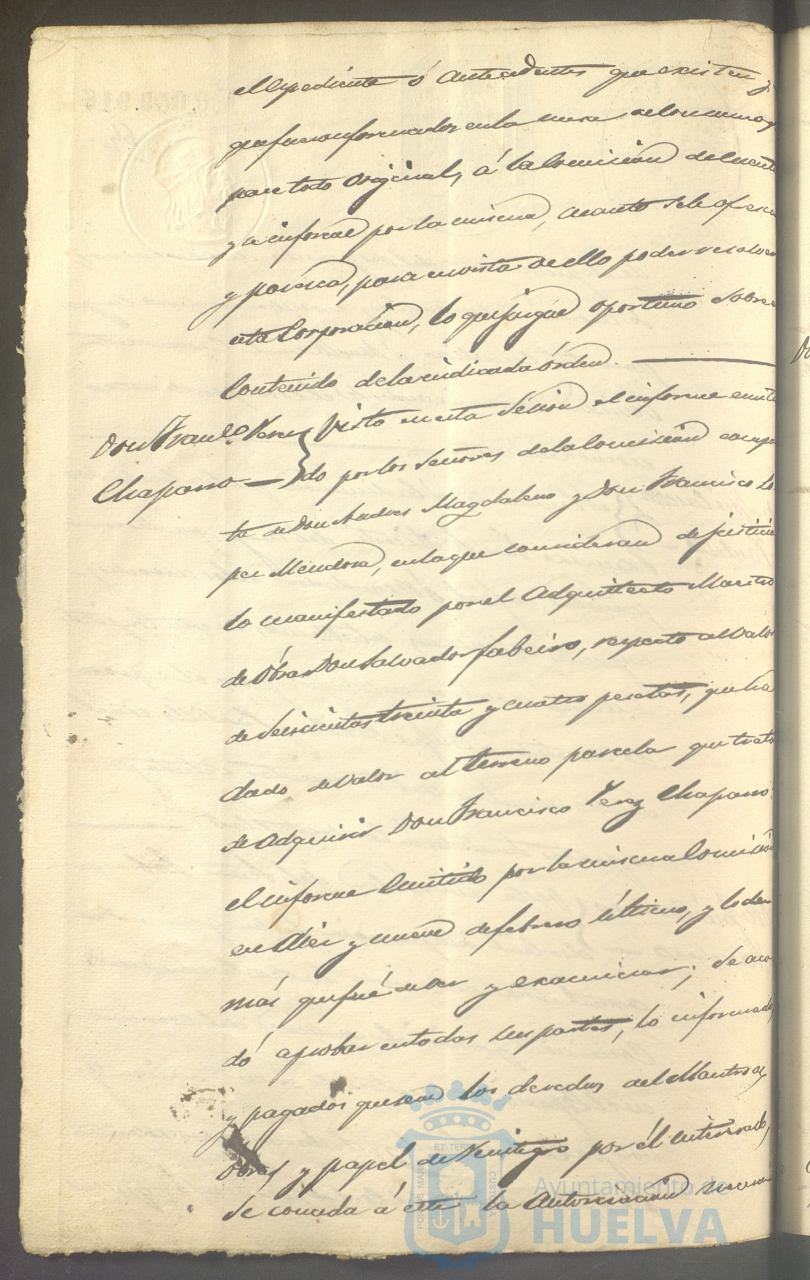 el espediente ó antecedentes que existen y
que fueron formados en la mesa de los mismos
pase todo original, á la Comision de
y a informe por la misma, cuanto se le ofresca
y paresca, para en vista de ello poder resolver
esta Corporacion, lo que juzgue oportuno sobre
Contenido de la indicada órden.
Don Franco. Perez
Chaparro
Visto en esta Sesion el informe emiti
do por los Señores de la Comision compues
ta de Don Andres Magdaleno y Don Francisco Lo
pez Mendoza, en la que consideran de justicia
lo manifestado por el Arquitecto Maestro
de Obras Don Salvador, respecto al valor
de Seiscientas treinta y cuatro pesetas, que ha
dado de valor al terreno parcela que trata
de adquirir Don Francisco Perez Chaparro:
el informe emitido por la misma Comision
en diez y nueve de febrero último, y lo de
más que fué de ver y examinar; se acor
dó aprobar en todas sus partes, lo informado,
y pagados que sean los derechos del Maestro de
Obras y papel de reintegro por él interesado,
se conceda á este la Autorizacion necesa
PORTUS MARIS ET TERRAE CUSTODIA
Ayuntamiento de
HUELVA